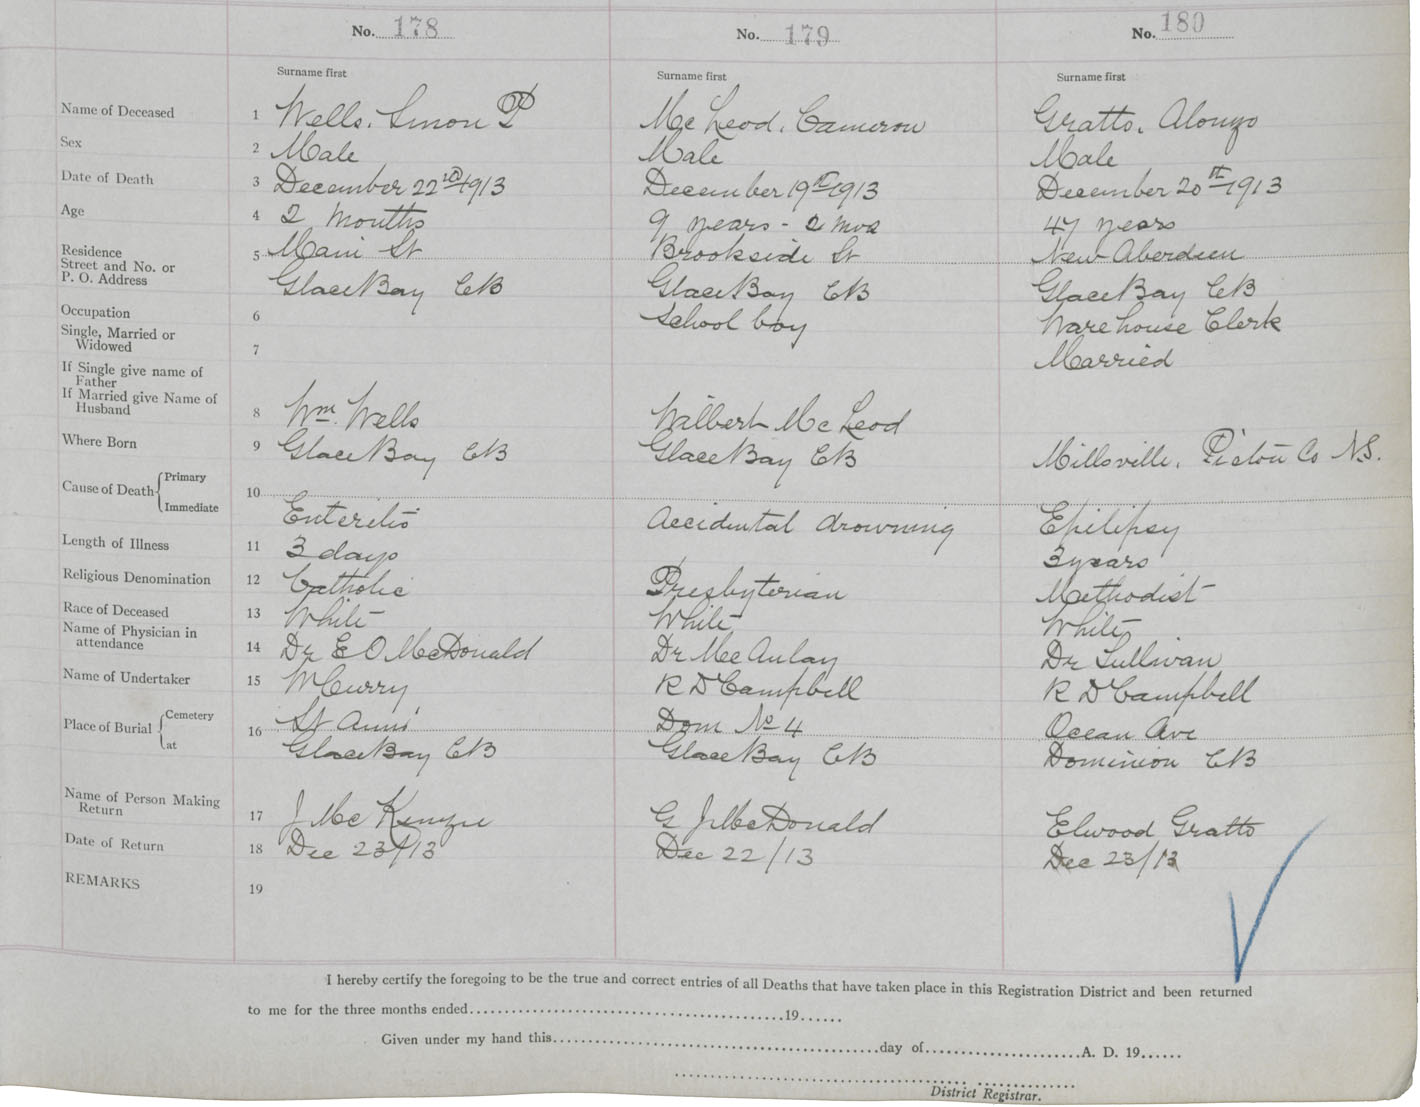 No. 178 No. 179 No. 180
Surname first Surname first Surname first
Name of Deceased 1 Wells, Simon P McLeod, Cameron Gratto, Alonzo
Sex 2 Male Male Male
Date of Death 3 December 22nd 1913 December 19th 1913 December 20th 1913
Age 4 2 months 9 years - 2 mos 47 years
Residence
Street and No. or
P. O. Address
5 Main St Brookside St New Aberdeen
Glace Bay CB Glace Bay CB Glace Bay CB
Occupation 6 School boy Warehouse Clerk
Single, Married or
Widowed 7 Married
If Single give name of
Father
If Married give Name of
Husband 8 Wm. Wells Wilbert McLeod
Where Born 9 Glace Bay CB Glace Bay CB Millsville, Pictou Co N.S.
Cause of Death { Primary
Immediate
10 Enteritis Accidental drowning Epilipsy
Length of Illness 11 3 days 3 years
Religious Denomination 12 Catholic Presbyterian Methodist
Race of Deceased 13 White White White
Name of Physician in
attendance 14 Dr E O McDonald Dr McAulay Dr Sullivan
Name of Undertaker 15 W Curry R D Campbell R D Campbell
Place of Burial { Cemetery
at
16 St Anns Dom No 4 Ocean Ave
Glace Bay CB Glace Bay CB Dominion CB
Name of Person Making
Return 17 J McKenzie G J McDonald Elwood Gratto
Date of Return 18 Dec 23/13 Dec 22/13 Dec 23/13
REMARKS 19
I hereby certify the foregoing to be the true and correct entries of all Deaths that have taken place in this Registration District and been returned
to me for the three months ended........................................19......
Given under my hand this........................................day of....................A. D. 19......
District Registrar.